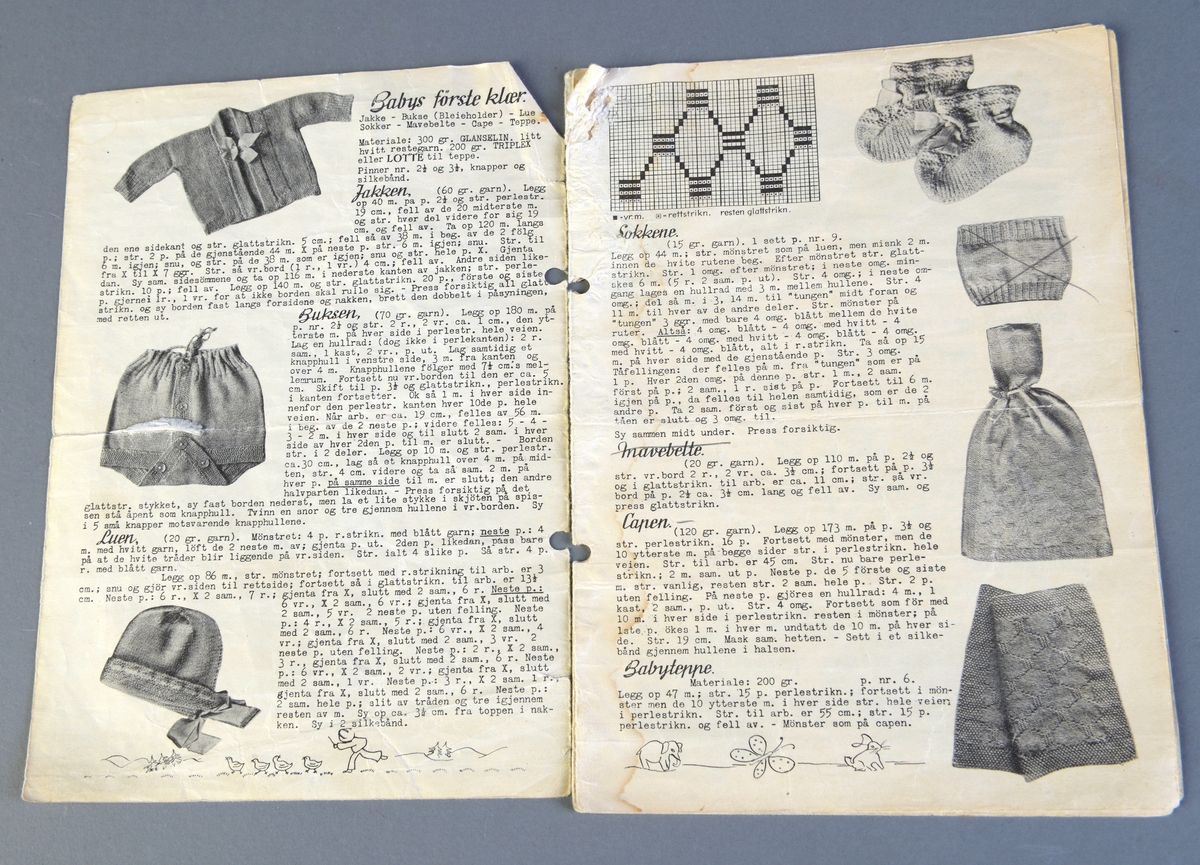 Babys förste klær.
Jakke - Bukse (Bleieholder) - Lue
Sokker - Mavebelte - Cape - Teppe.
Materiale: 300 gr. GLANSELIN, litt
hvitt restegarn. 200 gr. TRIPLEX
eller LOTTE til teppe.
Pinner nr. 2½ og 3½, knapper og
silkebånd.
Jakken, (60 gr. garn). Legg
op 40 m. på p. 2½ og str. perlestr.
19 cm., fell av de 20 midterste m.
og str. hver del videre for sig 19
cm. og fell av. Ta op 120 m. langs
den ene sidekant og str. glattstrikn. 5 cm.; fell så av 38 m. i beg. av de 2 fölg
p.; str. 2 p. på de gjenstående 44 m. X på neste p. str. 6 m. igjen; snu. Str. til
6 m. igjen; snu, og str. på de 38 m. som er igjen; snu og str. hele p. X. Gjenta
fra X til X 7 ggr. Str. så vr.bord (1 r., 1 vr.) 4 cm.; fell av. Andre siden like-
dan. Sy sam. sidesömmene og ta op 116 m. i nederste kanten av jakken; str. perle-
strikn. 10 p.; fell av. Legg op 140 m. og str. glattstrikn. 20 p., förste og siste
p. gjernei 1r., 1 vr. for at ikke borden skal rulle sig. - Press forsiktig all glatt
strikn. og sy borden fast langs forsidene og nakken, brett den dobbelt i påsyningen,
med retten ut.
Buksen, (70 gr. garn). Legg op 180 m. på
p. nr. 2½ og str. 2 r., 2 vr. ca. 1 cm., den yt-
terste m. på hver side i perlestr. hele veien.
Lag en hullrad: (dog ikke i perlekanten): 2 r.
sam., 1 kast, 2 vr., p. ut. Lag samtidig et
knapphull i venstre side, 3 m. fra kanten og
over 4 m. Knapphullene fölger med 7½ cm.s mel-
lemrum. Fortsett nu vr.borden til den er ca. 5
cm. Skift til p. 3½ og glattstrikn., perlestrikn.
i kanten fortsetter. Ök så 1 m. i hver side in-
nenfor den perlestr. kanten hver 10de p. hele
veien. Når arb. er ca. 19 cm., felles av 56 m.
i beg. av de 2 neste p.; videre felles: 5 - 4 -
3 - 2 m. i hver side og til slutt 2 sam. i hver
side av hver 2den p. til m. er slutt. - Borden
str. i 2 deler. Legg op 10 m. og str. perlestr.
ca.30 cm., lag så et knapphull over 4 m. på mid-
ten, str. 4 cm. videre og ta så sam. 2 m. på
hver p. på samme side til m. er slutt; den andre
halvparten likedan. - Press forsiktig på det
glattstr. stykket, sy fast borden nederst, men la et lite stykke i skjöten på spis-
sen stå åpent som knapphull. Tvinn en snor og tre gjennem hullene i vr.borden. Sy
i 5 små knapper motsvarende knapphullene.
Luen, (20 gr. garn). Mönstret: 4 p. r.strikn. med blått garn; neste p.: 4
m. med hvitt garn, löft de 2 neste m. av; gjenta p. ut. 2den p. likedan, pass bare
på at de hvite tråder blir liggende på vr.siden. Str. ialt 4 slike p. Så str. 4 p.
r. med blått garn.
Legg op 86 m., str. mönstret; fortsett med r.strikning til arb. er 3
cm.; snu og gjör vr.siden til rettside; fortsett så i glattstrikn. til arb. er 13½
cm. Neste p.: 6 r., X 2 sam., 7 r.; gjenta fra X, slutt med 2 sam., 6 r. Neste p.:
6 vr., X 2 sam., 6 vr.; gjenta fra X, slutt med
2 sam., 5 vr. 2 neste p. uten felling. Neste
p.: 4 r., X 2 sam., 5 r.; gjenta fra X, slutt
med 2 sam., 6 r. Neste p.: 6 vr., X 2 sam., 4
vr.; gjenta fra X, slutt med 2 sam., 3 vr. 2
neste p. uten felling. Neste p.: 2 r., X 2 sam.,
3 r., gjenta fra X, slutt med 2 sam., 6 r. Neste
p.: 6 vr., X 2 sam., 2 vr.; gjenta fra X, slutt
med 2 sam., 1 vr. Neste p.: 3 r., X 2 sam. 1 r.,
gjenta fra X, slutt med 2 sam., 6 r. Neste p.:
2 sam. hele p.; slit av tråden og tre igjennem
resten av m. Sy op ca. 3½ cm. fra toppen i nak-
ken. Sy i 2 silkebånd.
-vr.m. -rettstrikn. resten glattstrikn.
Sokkene.
(15 gr. garn). 1 sett p. nr. 9.
Legg op 44 m.; str. mönstret som på luen, men misnk 2 m.
innen de hvite rutene beg. Efter mönstret str. glatt-
strikn. Str. 1 omg. efter mönstret; i neste omg. min-
skes 6 m. (5 r. 2 sam. p. ut). Str. 4 omg.; i neste om-
gang lages en hullrad med 3 m. mellem hullene. Str. 4
omg.; del så m. i 3, 14 m. til "tungen" midt foran og
11 m. til hver av de andre deler. Str. mönster på
"tungen" 3 ggr. med bare 4 omg. blått mellem de hvite
ruter. Altså: 4 omg. blått - 4 omg. med hvitt - 4
omg. blått - 4 omg. med hvitt - 4 omg. blått - 4 omg.
med hvitt - 4 omg. blått, alt i r.strikn. Ta så op 15
m. på hver side med de gjenstående p. Str. 3 omg.
Tåfellingen: der felles på m. fra "tungen" som er på
1 p. Hver 2den omg. på denne p. str. 1 m., 2 sam.
först på p.; 2 sam., 1 r. sist på p. Fortsett til 6 m.
igjen på p., da felles til helen samtidig, som er de 2
andre p. Ta 2 sam. först og sist på hver p. til m. på
tåen er slutt og 3 omg. til.
Sy sammen midt under. Press forsiktig.
Mavebelte.
(20 gr. garn). Legg op 110 m. på p. 2½ og
str. vr.bord 2 r., 2 vr. ca. 3½ cm.; fortsett på p. 3½
og i glattstrikn. til arb. er ca. 11 cm.; str. så vr.
bord på p. 2½ ca. 3½ cm. lang og fell av. Sy sam. og
press glattstrikn.
Capen.
(120 gr. garn). Legg op 173 m. på p. 3½ og
str. perlestrikn. 16 p. Fortsett med mönster, men de
10 ytterste m. på begge sider str. i perlestrikn. hele
veien. Str. til arb. er 45 cm. Str. nu bare perle-
strikn.; 2 m. sam. ut p. Neste p. de 5 förste og siste
m. str. vanlig, resten str. 2 sam. hele p. Str. 2 p.
uten felling. På neste p. gjöres en hullrad: 4 m., 1
kast, 2 sam., p. ut. Str. 4 omg. Fortsett som för med
10 m. i hver side i perlestrikn. resten i mönster; på
1ste p. ökes 1 m. i hver m. undtatt de 10 m. på hver si-
de. Str. 19 cm. Mask sam. hetten. - Sett i et silke-
bånd gjennem hullene i halsen.
Babyteppe.
Materiale: 200 gr. p. nr. 6.
Legg op 47 m.; str. 15 p. perlestrikn.; fortsett i mön-
ster men de 10 ytterste m. i hver side str. hele veien
i perlestrikn. Str. til arb. er 55 cm.; str. 15 p.
perlestrikn. og fell av. - Mönster som på capen.